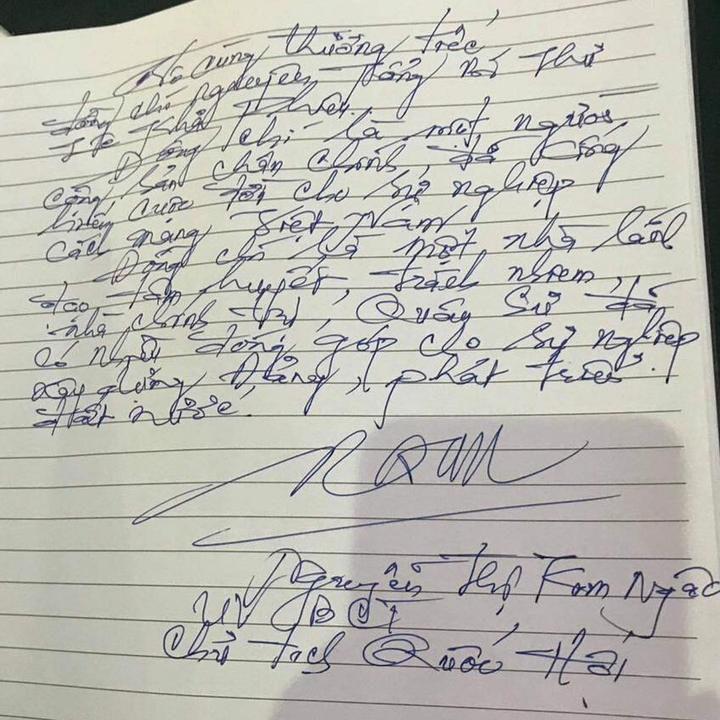 Vô cùng thương tiếc
đồng chí nguyên Tổng Bí Thư
Lê Khả Phiêu.
Đồng chí là một người
Cộng Sản chân chính, đã cống
hiến cuộc đời cho sự nghiệp
cách mạng Việt Nam.
Đồng chí là một nhà lãnh
đạo tâm huyết, trách nhiệm,
nhà chính trị, Quân sự đã
có nhiều đóng góp cho sự nghiệp
xây dựng Đảng, phát triển
đất nước.
Ngân
Nguyễn Thị Kim Ngân
UV BCT
Chủ tịch Quốc Hội